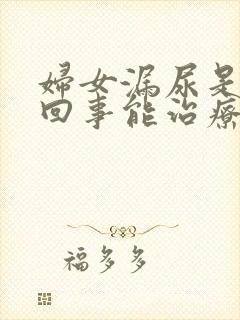 婦女漏尿是
回事能治療
福多多